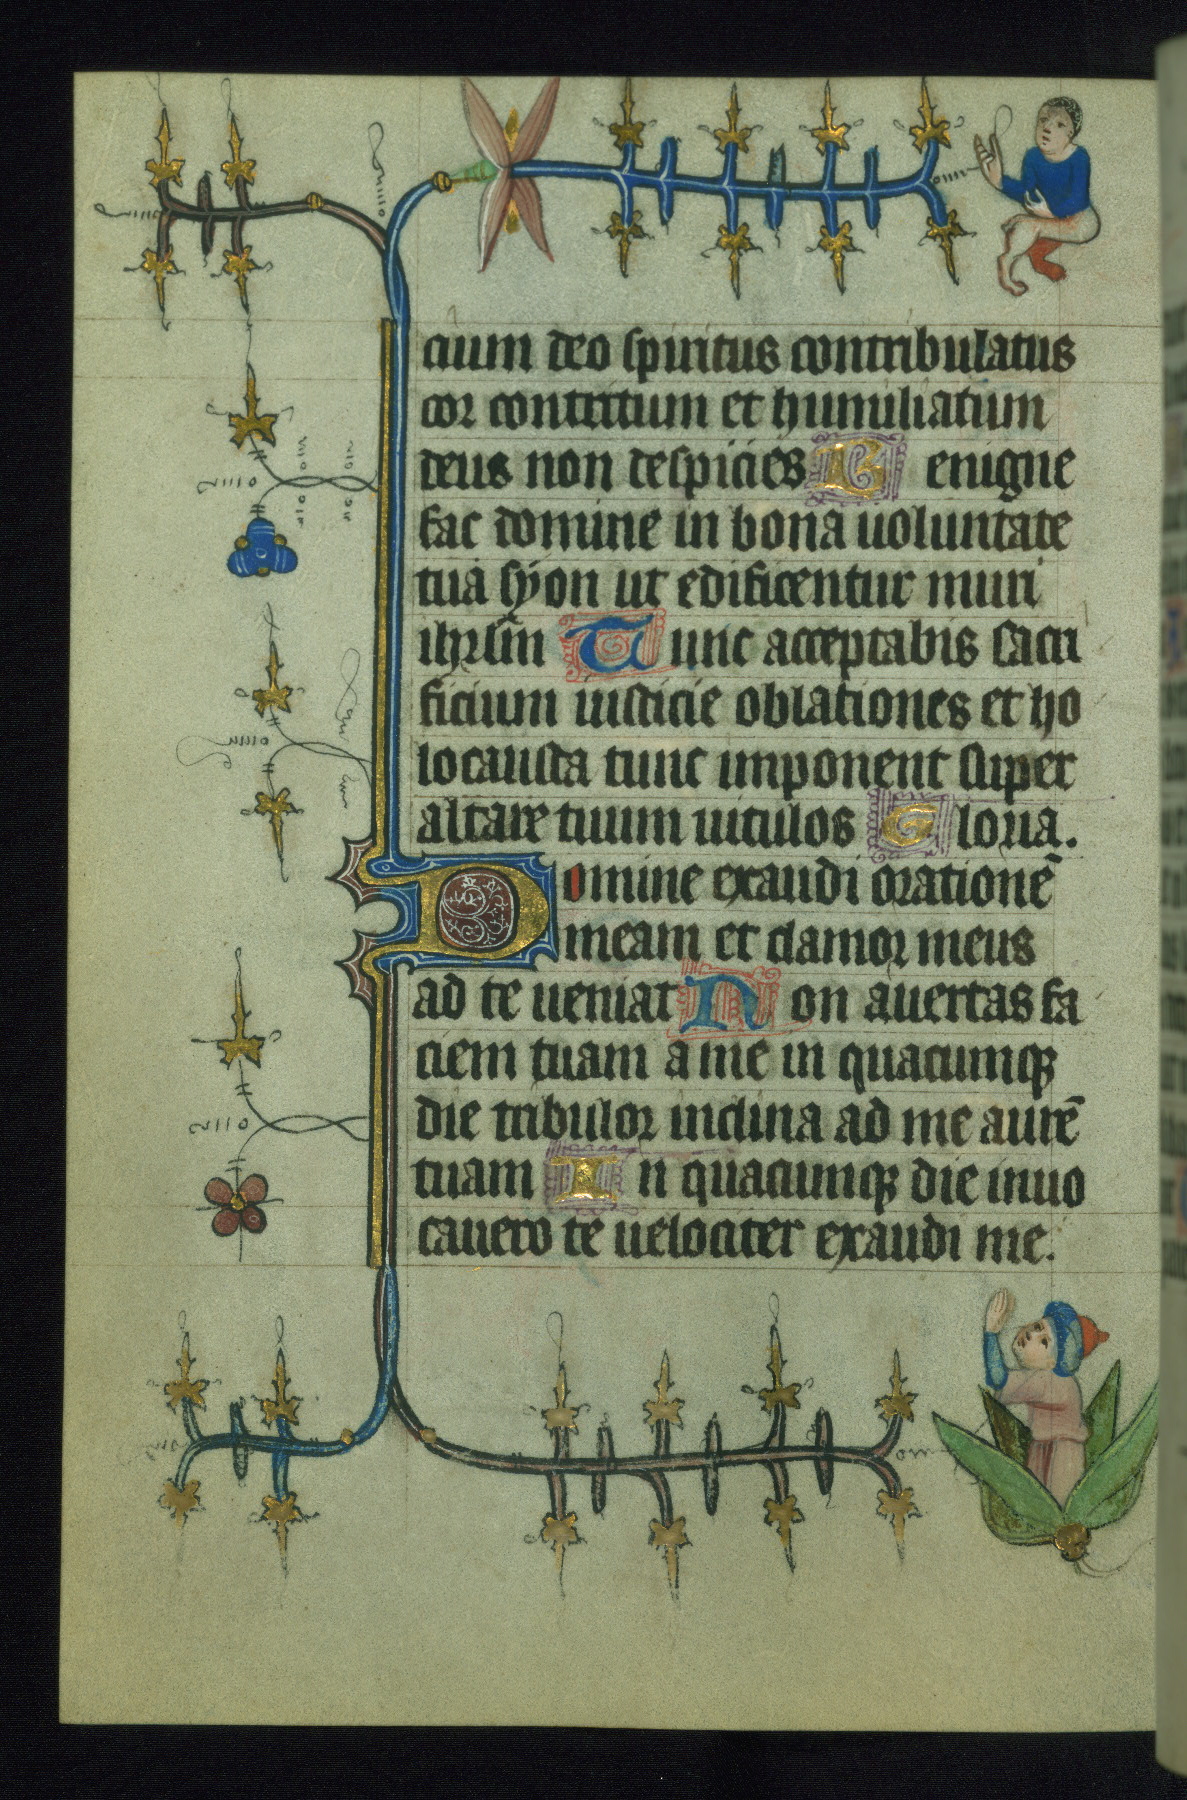 cium deo spiritus contribulatus
cor contritum et humiliatum
deus non despicies Benigne
fac domine in bona uoluntate
tua syon ut edificentur muri
ihrlm̄ Tunc acceptabis sacri
ficium iusticie oblationes et ho
locausta tunc imponent super
altare tuum uitulos Gloria.
Domine exaudi orationē
meam et clamor meus
ad te ueniat Non auertas fa
ciem tuam a me in quacumqꝫ
die tribulor inclina ad me aurē
tuam In quacumqꝫ die inuo
cauero te uelociter exaudi me.